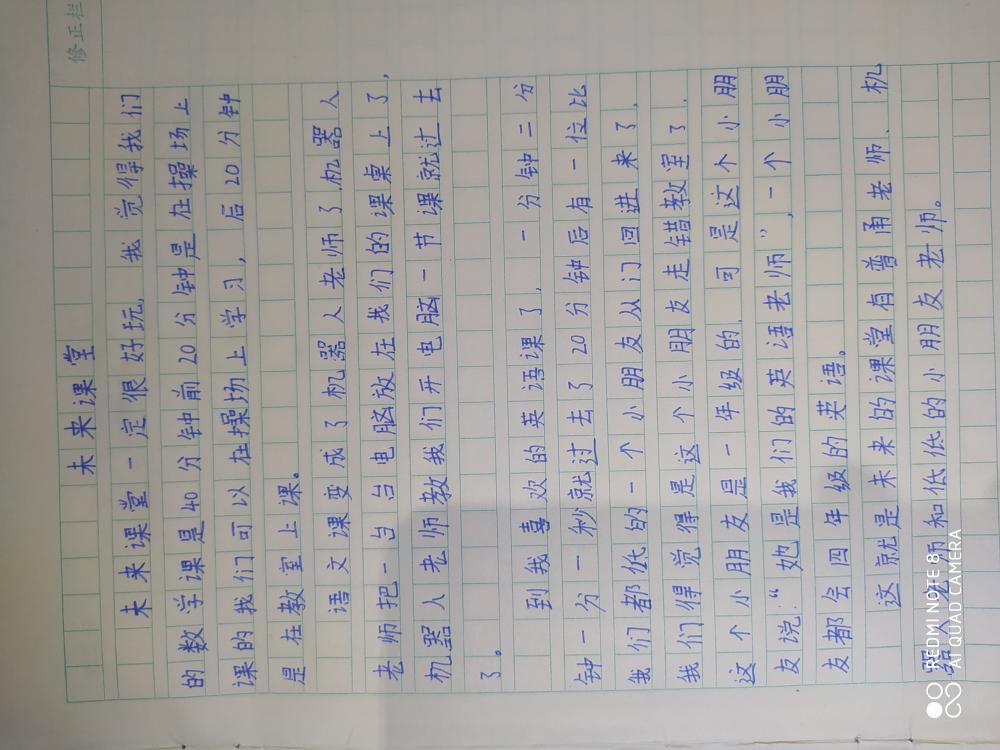 修正栏
未来课堂
未来课堂一定很好玩,我觉得我们
的数学课是40分钟前20分钟是在操场上
课的我们可以在操场上学习,后20分钟
是在教室上课。
语文课变成了机器人老师了,机器人
老师把一台台电脑放在我们的课桌上了,
机器人老师教我们开电脑一节课就过去
了。
到我喜欢的英语课了,一分钟二分
钟一分一秒就过去了20分钟后有一位比
我们都低的一个小朋友从门回进来了,
我们得觉得是这个小朋友走错教室了,
这个小朋友是一年级的,可是这个小朋
友说:“她是我们的英语老师”,一个小朋
友都会四年级的英语。
这就是未来的课堂有普甬老师、机
器人老师和低低的小朋友老师。
REDMI NOTE 8
AI QUAD CAMERA